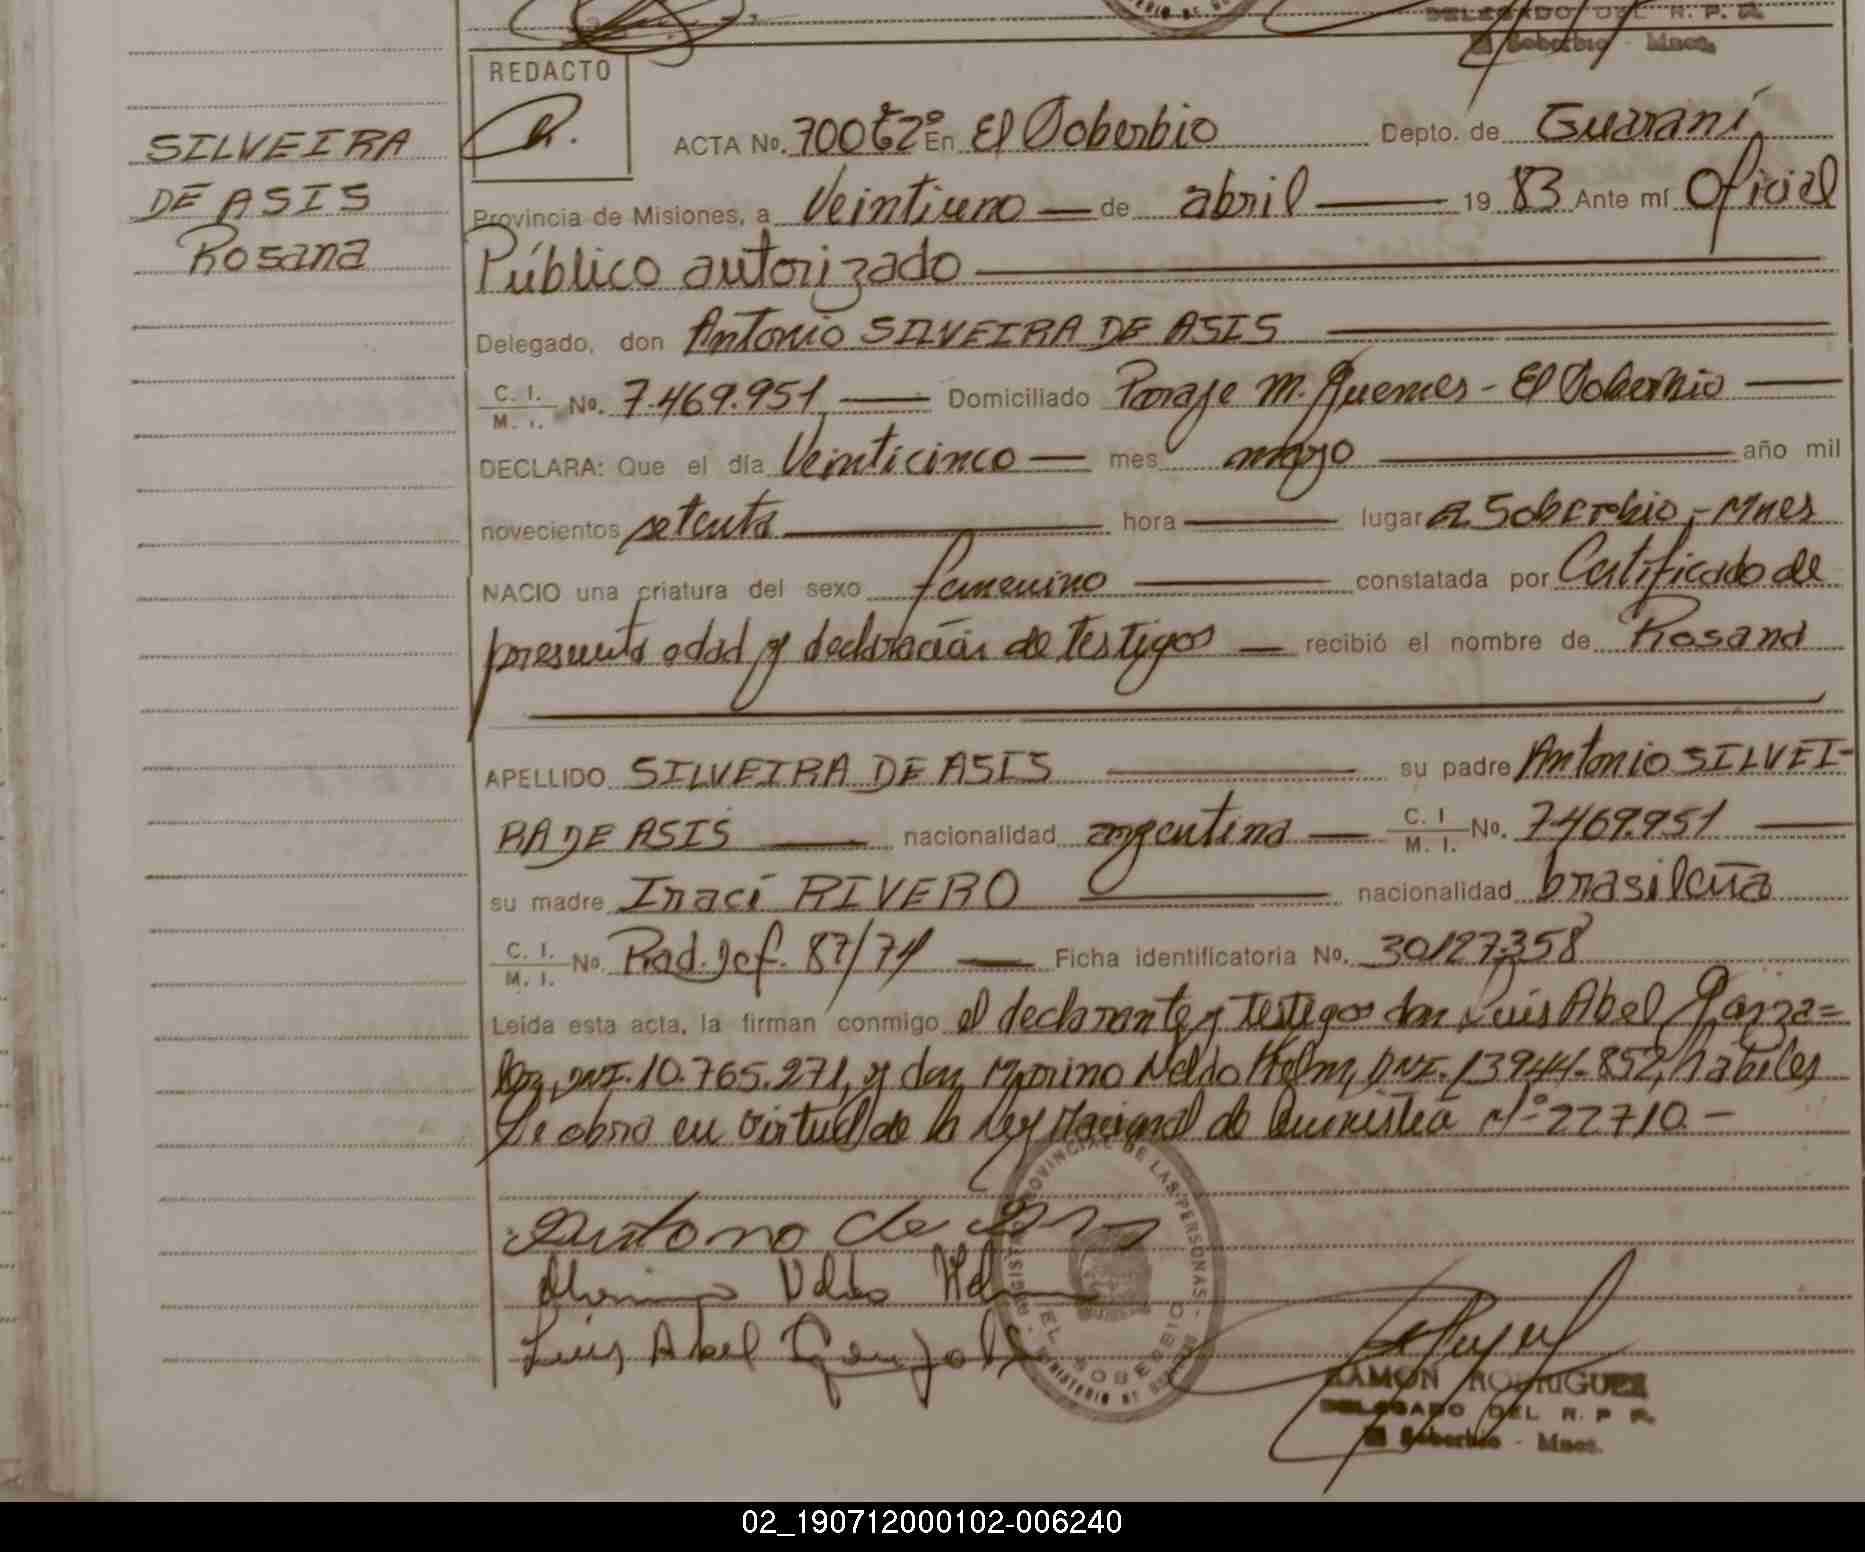 DELEGADO DEL R. P. P.
El Soberbio - Mnes.
REDACTO
SILVEIRA
DE ASIS
Rosana
ACTA No. 700 Tº 2º En El Soberbio Depto. de Guaraní
Provincia de Misiones, a Veintiuno — de abril — 19 83 Ante mí Oficial
Público autorizado
Delegado, don Antonio SILVEIRA DE ASIS
C. I. / M. I. No. 7.469.951 — Domiciliado Paraje M. Guemes - El Soberbio —
DECLARA: Que el día Veinticinco — mes mayo — año mil
novecientos setenta — hora — lugar El Soberbio - Mnes
NACIO una criatura del sexo femenino — constatada por Certificado de
presunta edad y declaración de testigos — recibió el nombre de Rosana
APELLIDO SILVEIRA DE ASIS — su padre Antonio SILVEI-
RA DE ASIS — nacionalidad argentina — C. I. / M. I. No. 7.469.951 —
su madre Iraci RIVERO — nacionalidad brasileña
C. I. / M. I. No. Rad. Def. 87/71 — Ficha identificatoria No. 30127358
Leída esta acta, la firman conmigo el declarante y testigos don Luis Abel Gonza=
lez, DNI. 10.765.271, y don Marino Neldo Helm, DNI. 13.944.852, habiles
Se obra en virtud de la Ley Nacional de Amnistía Nº 22710 -
Antonio de
Luis Abel Gonzalez
REGISTRO PROVINCIAL DE LAS PERSONAS
EL SOBERBIO
MINISTERIO DE
RAMON RODRIGUEZ
DELEGADO DEL R. P. P.
El Soberbio - Mnes.
02_190712000102-006240